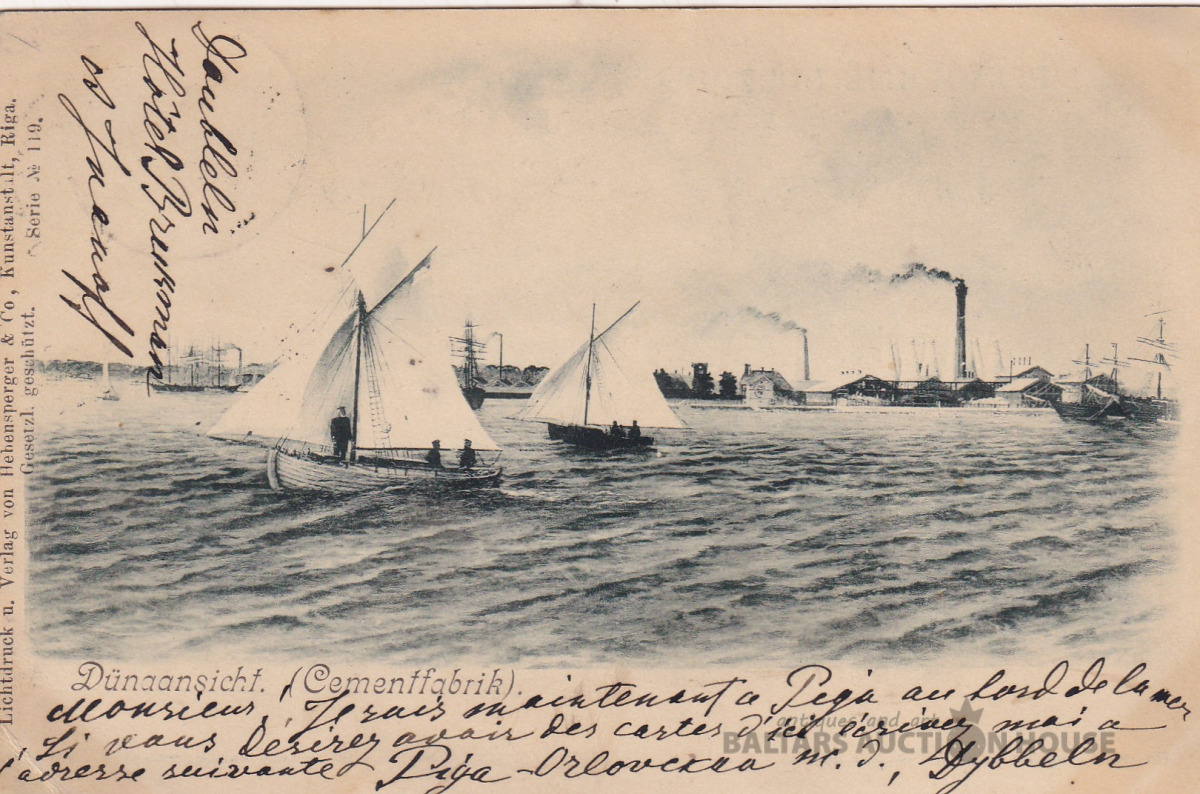 Doubbeln
Hôtel Bruxman
Lichtdruck u. Verlag von Hebensperger & Co, Kunstanstalt, Riga.
Gesetzl. geschützt. Serie № 119.
Dünaansicht. (Cementfabrik).
Monsieur! Je suis maintenant a Riga au bord de la mer
Si vous desirez avoir des cartes d'ici ecrivez moi a
l'adresse suivante Riga-Orlovскаго ж. д., Dybbeln
antiques and art
BALTARS AUCTION HOUSE